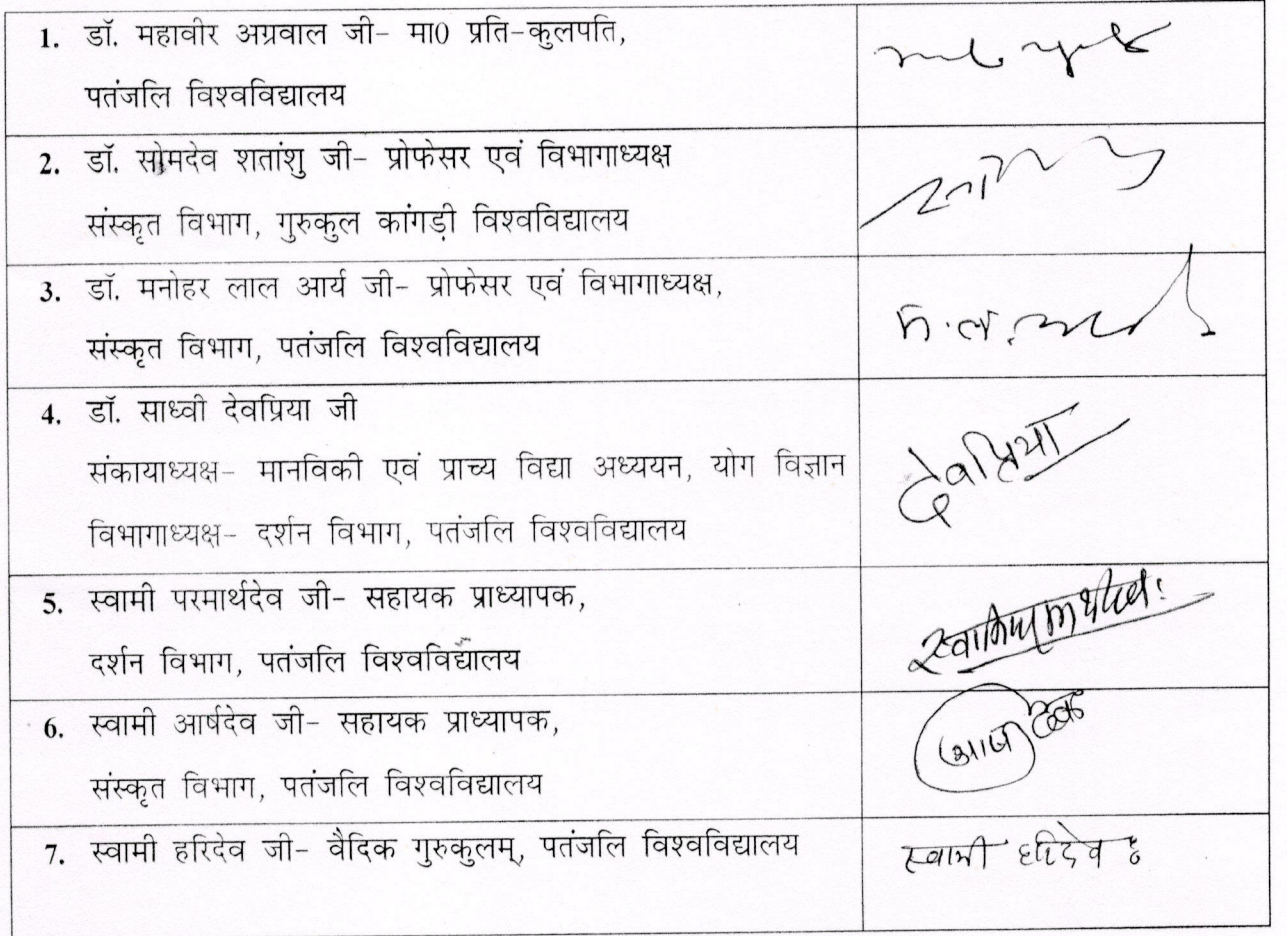 1. डॉ. महावीर अग्रवाल जी- मा0 प्रति-कुलपति,
पतंजलि विश्वविद्यालय
2. डॉ. सोमदेव शतांशु जी- प्रोफेसर एवं विभागाध्यक्ष
संस्कृत विभाग, गुरुकुल कांगड़ी विश्वविद्यालय
3. डॉ. मनोहर लाल आर्य जी- प्रोफेसर एवं विभागाध्यक्ष,
संस्कृत विभाग, पतंजलि विश्वविद्यालय
4. डॉ. साध्वी देवप्रिया जी
संकायाध्यक्ष- मानविकी एवं प्राच्य विद्या अध्ययन, योग विज्ञान
विभागाध्यक्ष- दर्शन विभाग, पतंजलि विश्वविद्यालय
देवप्रिया
5. स्वामी परमार्थदेव जी- सहायक प्राध्यापक,
दर्शन विभाग, पतंजलि विश्वविद्यालय
6. स्वामी आर्षदेव जी- सहायक प्राध्यापक,
संस्कृत विभाग, पतंजलि विश्वविद्यालय
7. स्वामी हरिदेव जी- वैदिक गुरुकुलम्, पतंजलि विश्वविद्यालय
स्वामी हरिदेवः